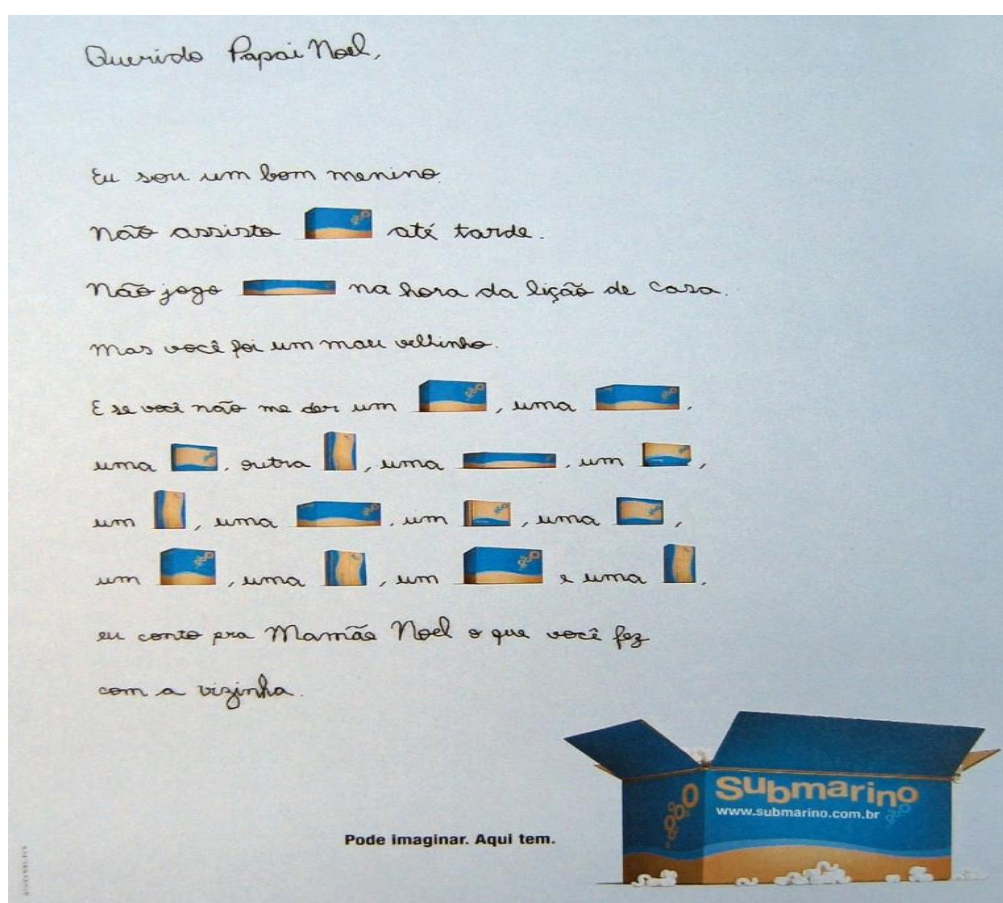 Querido Papai Noel,
Eu sou um bom menino.
Não assisto até tarde.
Não jogo na hora da lição de casa.
Mas você foi um mau velhinho.
E se você não me der um , uma ,
uma , outra , uma , um ,
um , uma , um , uma ,
um , uma , um e uma ,
eu conto pra Mamãe Noel o que você fez
com a vizinha.
submarino
www.submarino.com.br
Pode imaginar. Aqui tem.